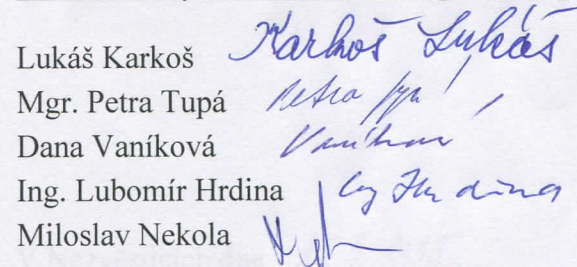 Lukáš Karkoš Karkoš Lukáš
Mgr. Petra Tupá Petra Tupá
Dana Vaníková Vaníková
Ing. Lubomír Hrdina Ing Hrdina
Miloslav Nekola